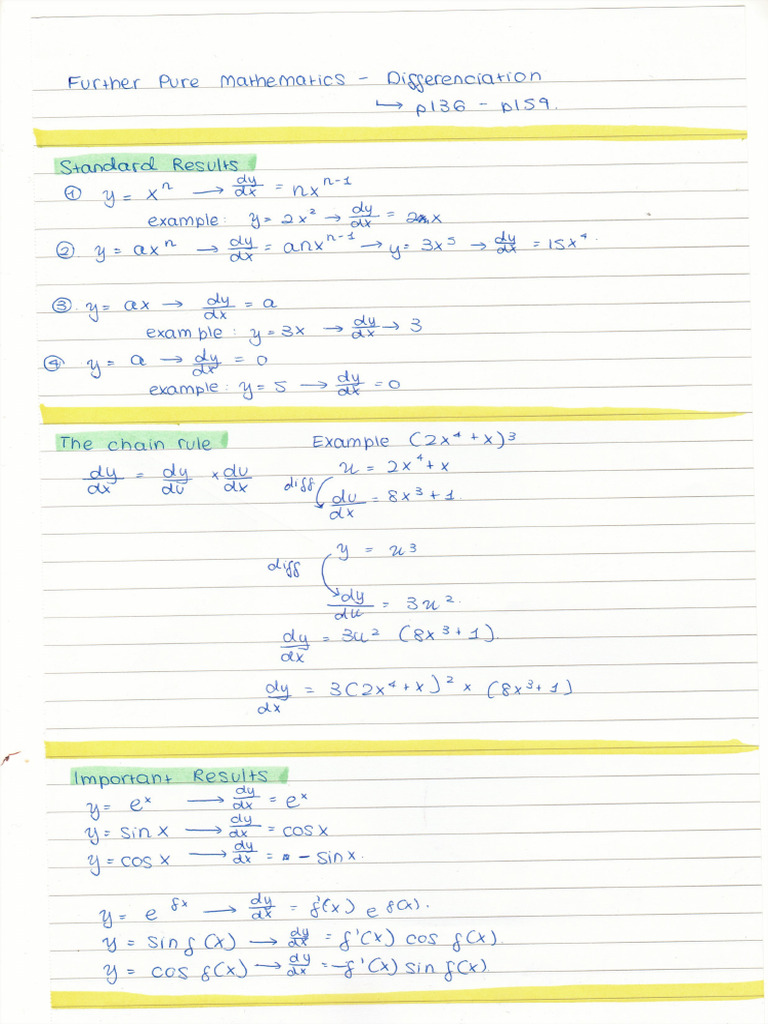 Further Pure Mathematics - Differenciation
↳ p136 - p159.
Standard Results
① y = xⁿ → dy/dx = nxⁿ⁻¹
example: y = 2x² → dy/dx = 2x
② y = axⁿ → dy/dx = anxⁿ⁻¹ → y = 3x⁵ → dy/dx = 15x⁴.
③ y = ax → dy/dx = a
example: y = 3x → dy/dx → 3
④ y = a → dy/dx = 0
example: y = 5 → dy/dx = 0
The chain rule Example (2x⁴ + x)³
dy/dx = dy/du × du/dx
u = 2x⁴ + x
diff du/dx = 8x³ + 1.
y = u³
diff
dy/du = 3u².
dy/dx = 3u² (8x³ + 1).
dy/dx = 3(2x⁴ + x)² × (8x³ + 1)
Important Results
y = eˣ → dy/dx = eˣ
y = sin x → dy/dx = cos x
y = cos x → dy/dx = - sin x.
y = e^fx → dy/dx = f'(x) e^f(x).
y = sin f(x) → dy/dx = f'(x) cos f(x).
y = cos f(x) → dy/dx = -f'(x) sin f(x).